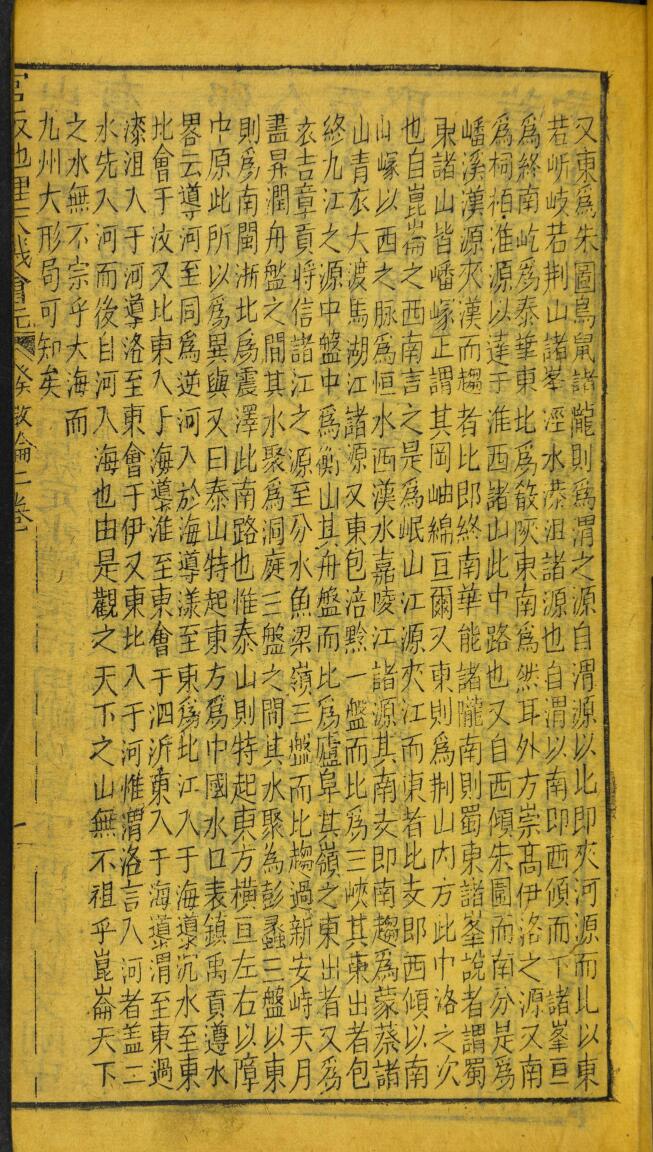 又東爲朱圉鳥鼠諸隴則爲渭之源自渭源以北即夾河源而北以東
若岍岐若荆山諸峯涇水漆沮諸源也自渭以南即西傾而下諸峯亘
爲終南屹爲泰華東北爲殽陜東南爲熊耳外方崇高伊洛之源又南
爲桐栢淮源以達于淮西諸山此中路也又自西傾朱圉而南分是爲
嶓溪漢源夾漢而趨者北即終南華熊諸隴南則蜀東諸峯說者謂蜀
東諸山皆嶓嶓正謂其岡岫綿亘爾又東則爲荆山内方此中洛之次
也自崑崙之西南言之是爲岷山江源夾江而東者北支即西傾以南
嶓冢以西之脉爲恒水西漢水嘉陵江諸源其南支即南趨爲蒙蔡諸
山青衣大渡馬湖江諸源又東包涪黔一盤而北爲三峽其東出者包
絡九江之源中盤中爲衡山其舟盤而北爲廬阜其嶺之東出者又爲
衣吉章貢將信諸江之源至分水魚梁嶺三盤而北趨過新安峙天月
盡昇潤舟盤之間其水聚爲洞庭三盤之間其水聚為彭蠡三盤以東
則爲南閩浙北爲震澤此南路也惟泰山則特起東方橫亘左右以障
中原此所以爲異與又曰泰山特起東方爲中國水口表鎮禹貢導水
畧云導河至同爲逆河入於海導漾至東爲北江入于海導沉水至東
北會于汶又北東入于海導淮至東會于泗沂東入于海導渭至東過
漆沮入于河導洛至東會于伊又東北入于河惟渭洛言入河者盖二
水先入河而後自河入海也由是觀之天下之山無不祖乎崑崙天下
之水無不宗乎大海而
九州大形局可知矣
官板地理天機會元 癸數論二卷